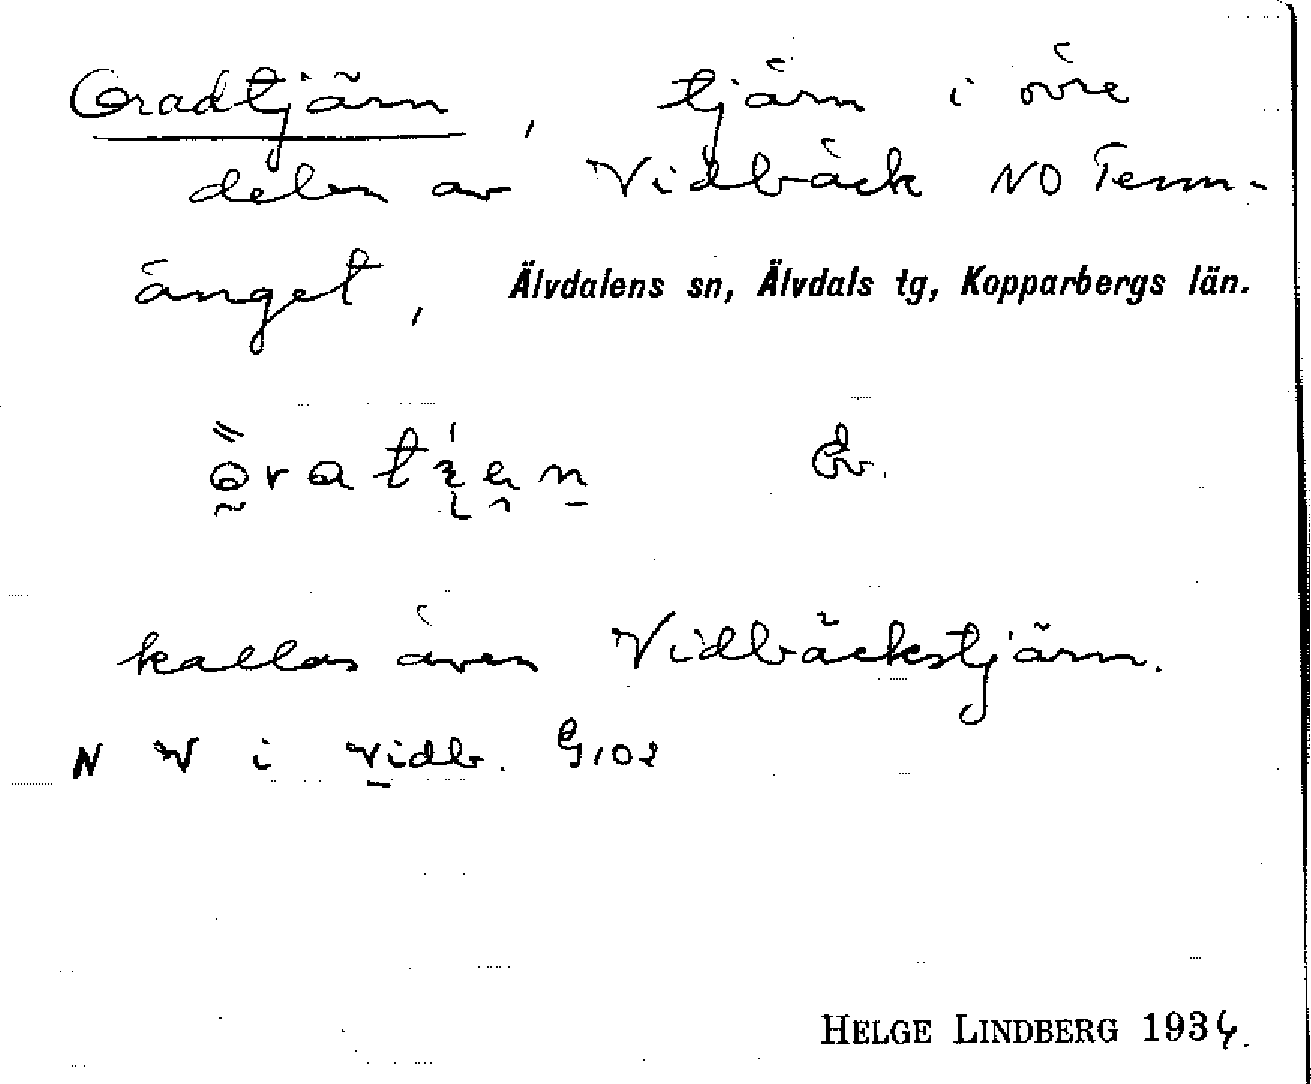 Oradtjärn, tjärn i övre
delen av Vidbäck NO Tenn-
änget, Älvdalens sn, Älvdals tg, Kopparbergs län.
Öv.
kallas även Vidbäckstjärn.
N W i Vidb. G102
HELGE LINDBERG 1934.